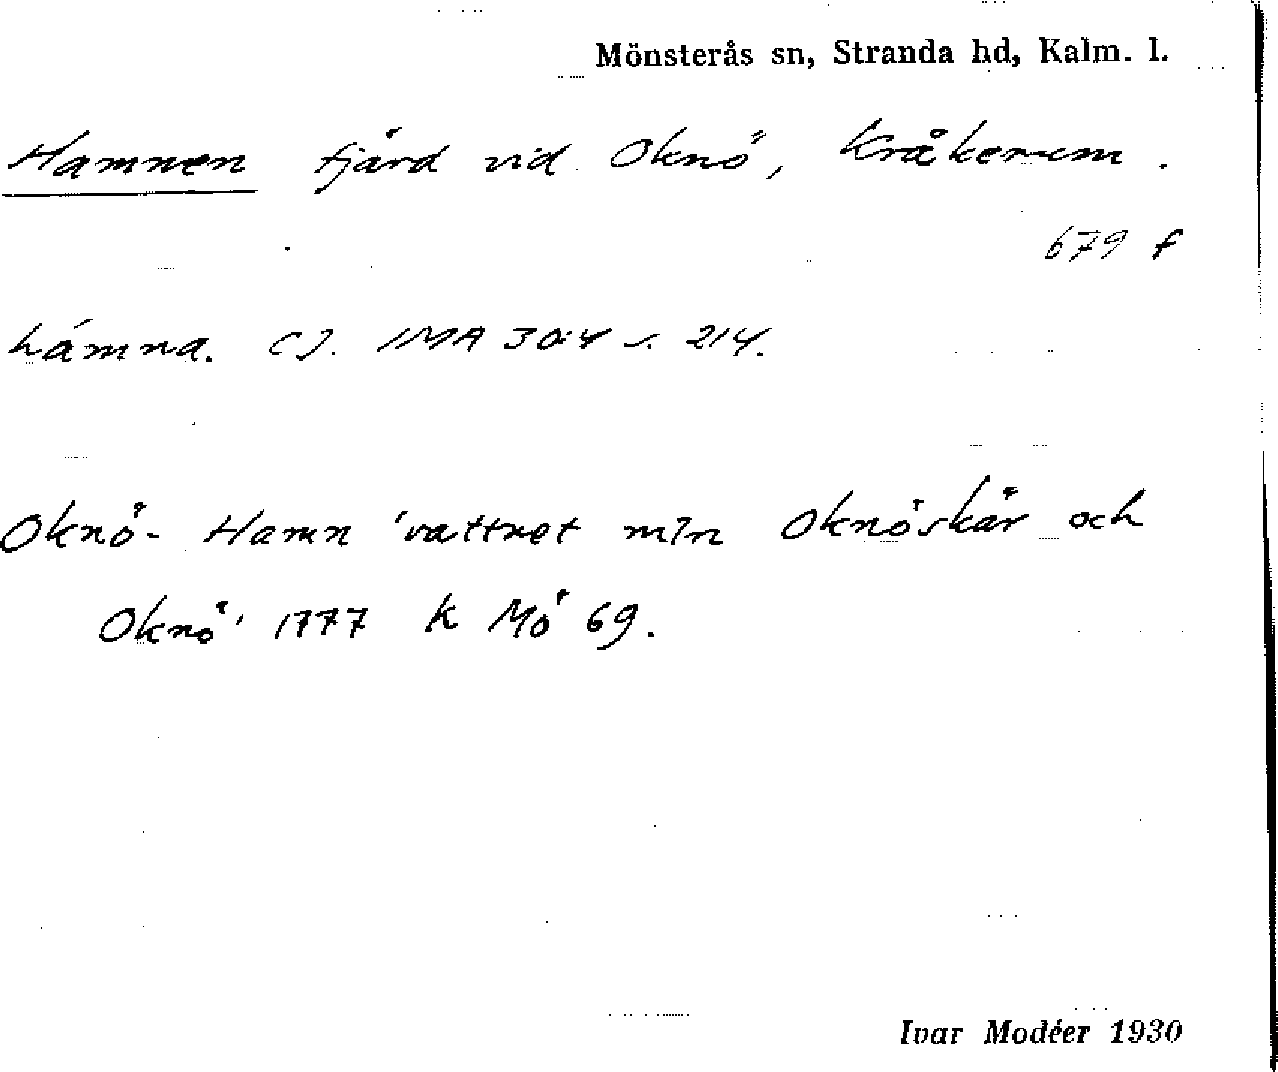 Mönsterås sn, Stranda hd, Kalm. l.
Hamnen fjärd vid Oknö, Kråkerum.
679 f
hámna. CJ. IMA 30:4 s. 214.
Oknö-Hamn 'vattnet m/n Oknöskär och
Oknö' 1777 K Mö 69.
Ivar Modéer 1930